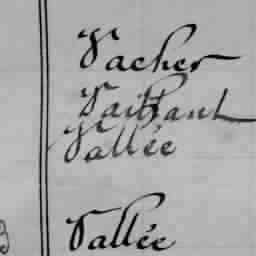 Vacher
Vaillant
Vallée
Vallée